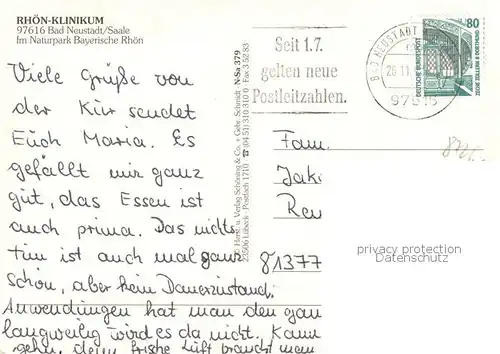 RHÖN-KLINIKUM
97616 Bad Neustadt/Saale
Im Naturpark Bayerische Rhön
Viele Grüße von
der Kur sendet
Euch Maria. Es
gefällt mir ganz
gut, das Essen ist
auch prima. Das nichts
tun ist auch mal ganz
schön, aber kein Dauerzustand.
Anwendungen hat man den gan
langweilig wird es da nicht. Kann
gehn, denn frische Luft braucht man
Herst. u. Verlag Schöning & Co. + Gebr. Schmidt N-Sa 379
23506 Lübeck · Postfach 1710 (04 51) 310 310 0 · Fax 3 52 83
Seit 1.7.
gelten neue
Postleitzahlen.
BAD NEUSTADT
97616
80
DEUTSCHE BUNDESPOST
ZECHE ZOLLERN II DORTMUND
Fam.
81377
privacy protection
Datenschutz